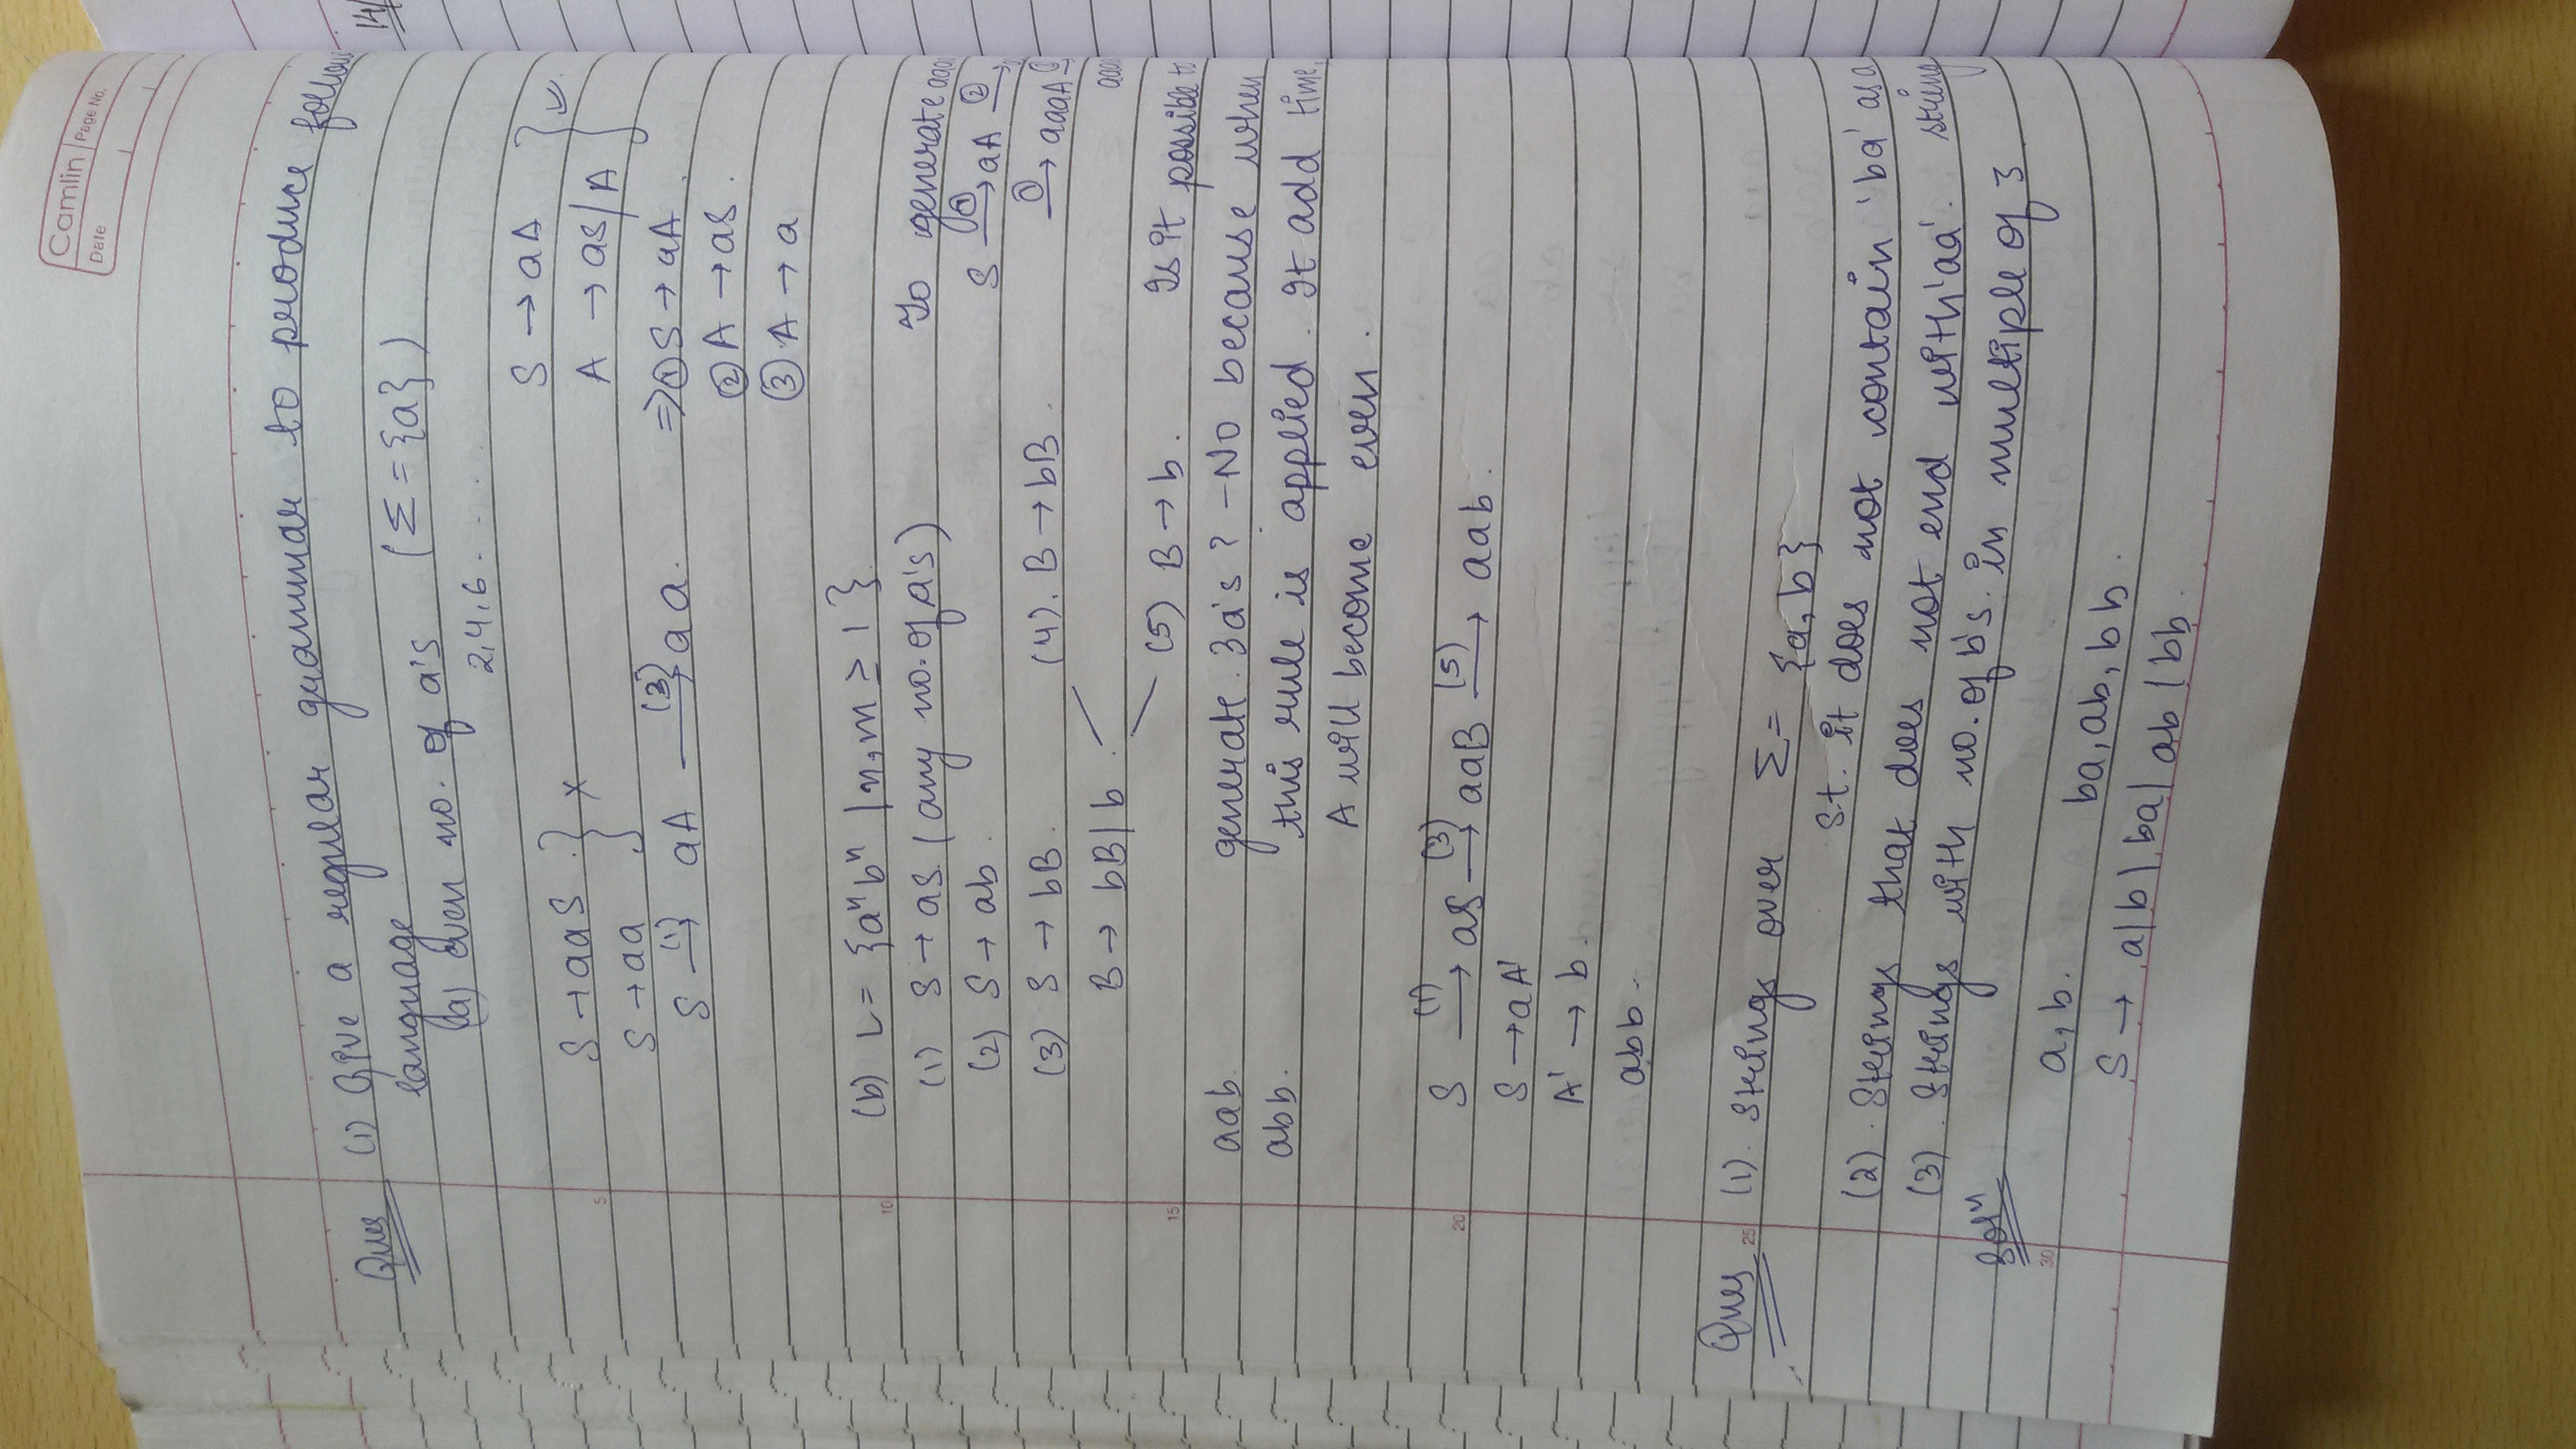 Camlin Page No.
Date
Ques (1) Give a regular grammar to produce follow
language
(a) even no. of a's (Σ = {a})
2,4,6 . . . .
S → aaS } ×
S → aa
S → aA } ✓
A → as/A
S (1)→ aA (3)→ aa.
⇒ ① S → aA
② A → as.
③ A → a
(b) L = {aⁿbⁿ | n,m ≥ 1}
(1) S → aS (any no. of a's)
(2) S → ab.
(3) S → bB. (4). B → bB
B → bB/b
(5) B → b.
To generate aaa
S ①→ aA ②→
①→ aaaA
aaa
Is it possible to
aab. generate 3a's? - No because when
abb. this rule is applied. It add time
A will become even.
S (1)→ aS (3)→ aaB (5)→ aab.
S → aA'
A' → b
abb.
Ques (1). Strings over Σ = {a, b}
s.t. it does not contain 'ba' as a
string
(2). Strings that does not end with 'aa'.
(3). Strings with no. of b's. in multiple of 3
Solⁿ
a, b. ba, ab, bb.
S → a/b/ba/ab/bb.
14/
5
10
15
20
25
30